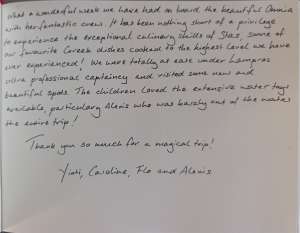 What a wonderful week we have had on board the beautiful Omnia
with her fantastic crew! It has been nothing short of a privilege
to experience the exceptional culinary skills of Stas, some of
our favourite Greek dishes cooked to the highest level we have
ever experienced! We were totally at ease under Lampros
ultra professional captaincy and visited some new and
beautiful spots. The children loved the extensive water toys
available, particulary Alexis who was barely out of the water
the entire trip!
Thank you so much for a magical trip!
Caroline, Flo and Alexis